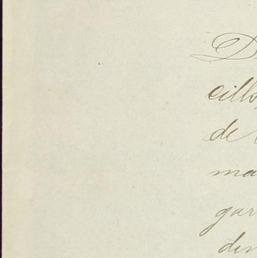 D
cillo
de
ma
gar
den